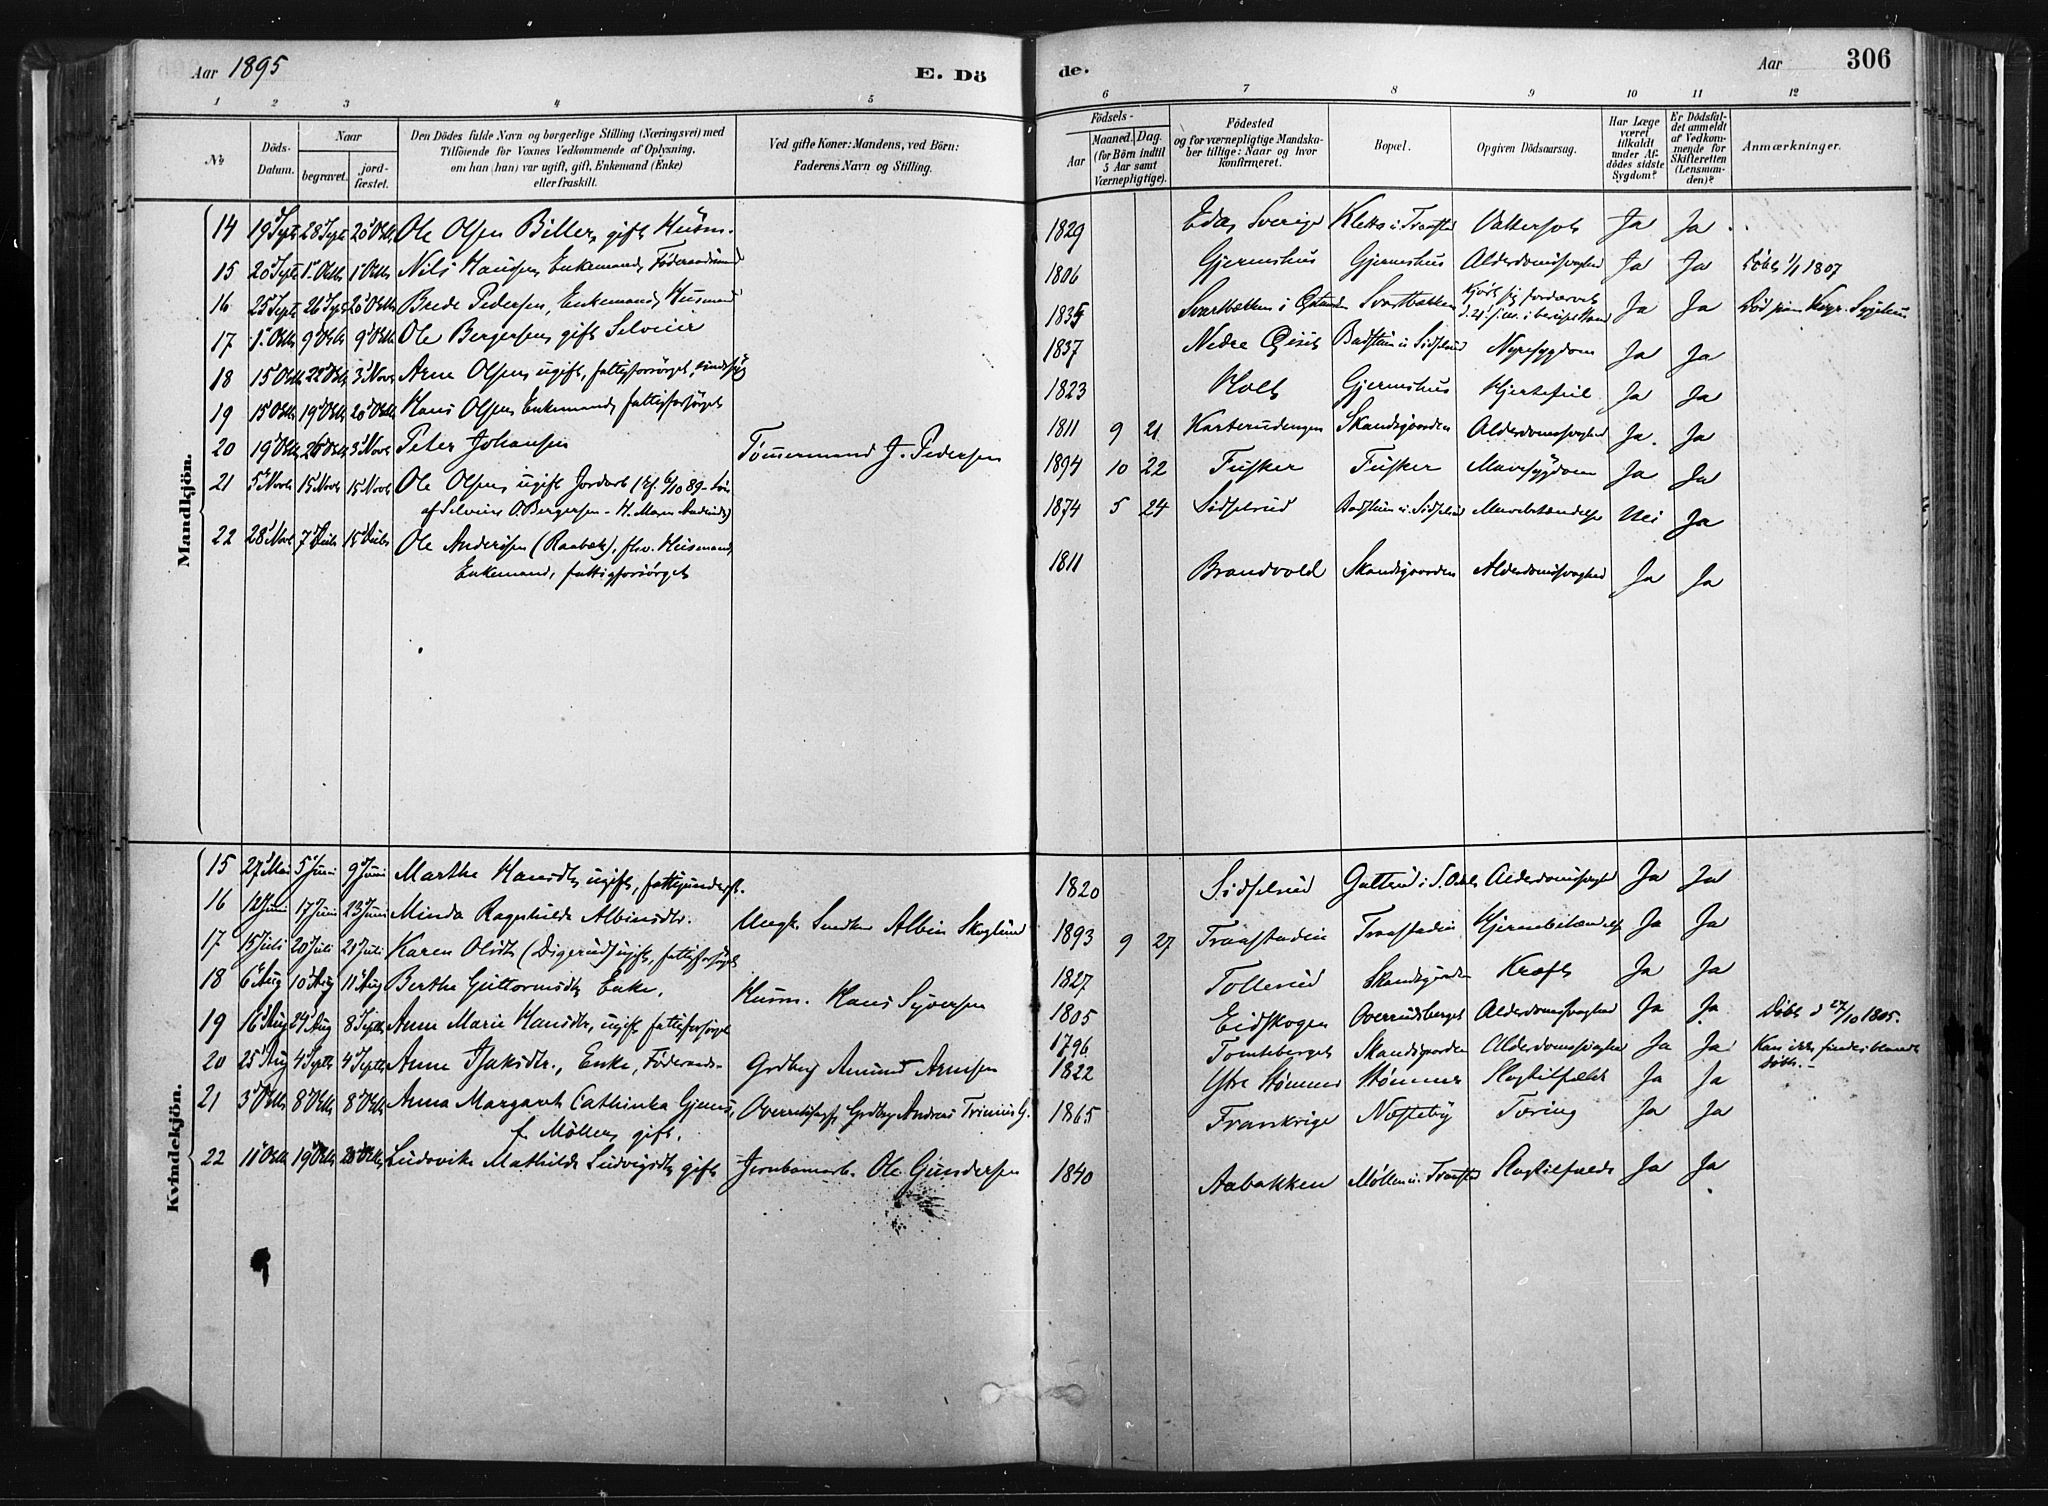 Aar 1895
E. Dö
de.
Aar
306
1 2 3 4 5 6 7 8 9 10 11 12
No
Döds-Datum.
Naar
begravet.
jord-fæstet.
Den Dödes fulde Navn og borgerlige Stilling (Næringsvei) med
Tilföiende for Voxnes Vedkommende af Oplysning,
om han (hun) var ugift, gift, Enkemand (Enke)
eller fraskilt.
Ved gifte Koner: Mandens, ved Börn:
Faderens Navn og Stilling.
Födsels-
Aar
Maaned. Dag.
(for Börn indtil
5 Aar samt
Værnepligtige).
Födested
og for værnepligtige Mandska-
ber tillige: Naar og hvor
konfirmeret.
Bopæl.
Opgiven Dödsaarsag.
Har Læge
været
tilkaldt
under Af-
dödes sidste
Sygdom?
Er Dödsfal-
det anmeldt
af Vedkom-
mende for
Skifteretten
(Lensman-
den)?
Anmærkninger.
Mandkjön.
14 19 Septr 28 Septr 20 Oktb. Ole Olsen Biller, gift Husm. 1829 Eda, Sverige Vattersot Ja Ja
15 20 Septr 1 Oktb 1 Oktb Nils Hansen, Enkemand, Föderaadsmand 1806 Gjermshus Gjermshus Alderdomssvaghed Ja Ja Döbt 1/1 1807
16 25 Septr 26 Septr 20 Oktb Brede Pedersen, Enkemand, Husmand 1835 Svartbækken Ja Ja
17 1 Oktb 9 Oktb 9 Oktb Ole Bergersen gift Selveier 1837 Nedre Badstuen i Sidselrud Nyresygdom Ja Ja
18 15 Oktb 22 Oktb 3 Novb Arne Olsen, ugift, fattigforsörget, sindssyg 1823 Holt Gjermshus Hjertefeil Ja Ja
19 15 Oktb 19 Oktb 20 Oktb Hans Olsen Enkemand, fattigforsörget 1811 9 21 Karterudengen Skandsgaarden Alderdomssvaghed Ja. Ja
20 19 Oktb 26 Oktb 3 Novb Peter Johansen Tömmermand J. Pedersen 1894 10 22 Fusker Fusker Mavesygdom Ja Ja
21 5 Novb 15 Novb 15 Novb Ole Olsen ugift Jordarb (kf. 6/10 89 - Sön
af Selveier O. Bergersen - H. Maren Andersd) 1874 5 24 Sidselrud Badstuen i Sidselrud Mavebetændelse Nei Ja
22 28 Novb 7 Decb 15 Decb Ole Andersen (Raabæk), fhv. Husmand,
Enkemand, fattigforsörget 1811 Brandvold Skandsgaarden Alderdomssvaghed Ja Ja
Kvindekjön.
15 27 Mai 5 Juni 9 Juni Marthe Hansdtr, ugift, fattigunderst. 1820 Sidselrud Alderdomssvaghed Ja Ja
16 12 Juni 17 Juni 23 Juni Minda Ragnhilde Albinsdtr. Albin Skoglund 1893 9 27 Traastadeie Traastadeie Hjernebetændelse Ja Ja
17 15 Juli 20 Juli 21 Juli Karen Olsdtr (Digerud) ugift, fattigforsörget 1827 Tollerud Skandsgaarden Kræft Ja Ja
18 6 Aug 10 Aug 11 Aug Berthe Guttormsdtr Enke, Husm. Hans Syversen 1805 Eidskogen Overrudsberget Alderdomssvaghed Ja Ja Döbt d 27/10 1805.
19 16 Aug 24 Aug 8 Septr Anne Marie Hansdtr, ugift fattigforsörget 1796 Tomteberget Skandsgaarden Alderdomssvaghed Ja Ja Kan ikke findes blandt
döbte. -
20 25 Aug 4 Septr 4 Septr Anne Isaksdtr., Enke, Föderaads- Grdbrg Amund Arnesen 1822 Ystre Stömner Stömner Slagtilfælde Ja Ja
21 3 Oktb 8 Oktb 8 Oktb Anna Margareth Cathinka Gjems,
f. Möller, gift. Grdbrg Andreas Trinius G. 1865 Frankrige Næsteby Tæring Ja Ja
22 11 Oktb 19 Oktb 20 Oktb Ludovika Mathilde Ludvigsdtr gift Jernbanearb. Ole Gundersen 1840 Aabakken Möllen i Traastad Slagtilfælde Ja Ja